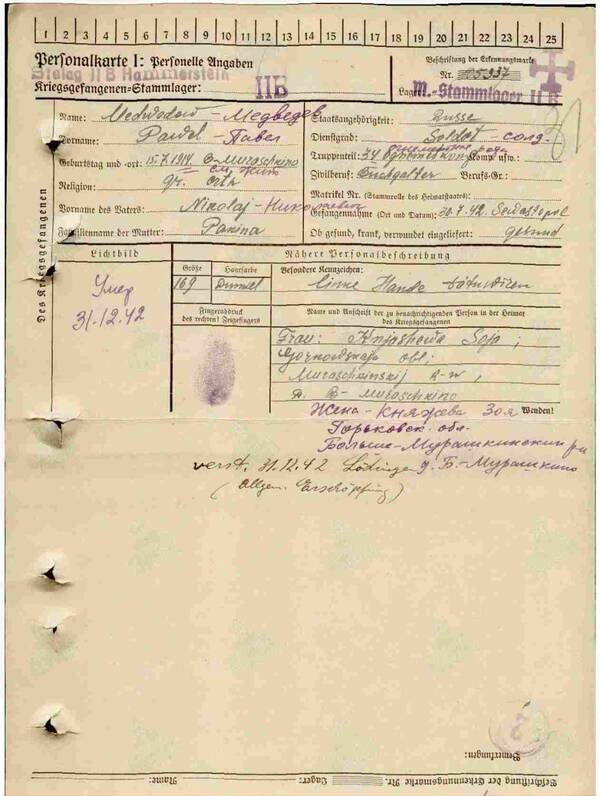 1 2 3 4 5 6 7 8 9 10 11 12 13 14 15 16 17 18 19 20 21 22 23 24 25
Personalkarte I: Personelle Angaben
Stalag II B Hammerstein
Kriegsgefangenen-Stammlager: II B
Beschriftung der Erkennungsmarke
Nr. 25937
Lager: M.-Stammlager II B
Des Kriegsgefangenen
Name: Medwedew - Медведев
Vorname: Pawel - Павел
Geburtstag und -ort: 15.7.1914 B-Muraschkino
Religion: gr. orth
Vorname des Vaters: Nikolaj - Николаевич
Familienname der Mutter: Panina
Staatsangehörigkeit: Russe
Dienstgrad: Soldat - солд.
Truppenteil: 34 Komp. usw.:
Zivilberuf: Buchgalter Berufs-Gr.:
Matrikel Nr. (Stammrolle des Heimatstaates):
Gefangennahme (Ort und Datum): 30.7.42. Sewastopol
Ob gesund, krank, verwundet eingeliefert: gesund
Lichtbild
Умер
31.12.42
Nähere Personalbeschreibung
Größe
169
Haarfarbe
Dunkel
Besondere Kennzeichen:
linke Hande
Fingerabdruck
des rechten! Zeigefingers
Name und Anschrift der zu benachrichtigenden Person in der Heimat
des Kriegsgefangenen
Frau: Knjashewa Soja;
Gorkowskaja obl;
Muraschkinskij R-n,
D. B-Muraschkino
Wenden!
Жена - Княжева Зоя
Горьковск. обл.
Больше-Мурашкинский р-н
д. Б.-Мурашкино
verst. 31.12.42 Lötzingen
(Allgem. Erschöpfung)
Bemerkungen:
Beschriftung der Erkennungsmarke Nr. Lager: Name: